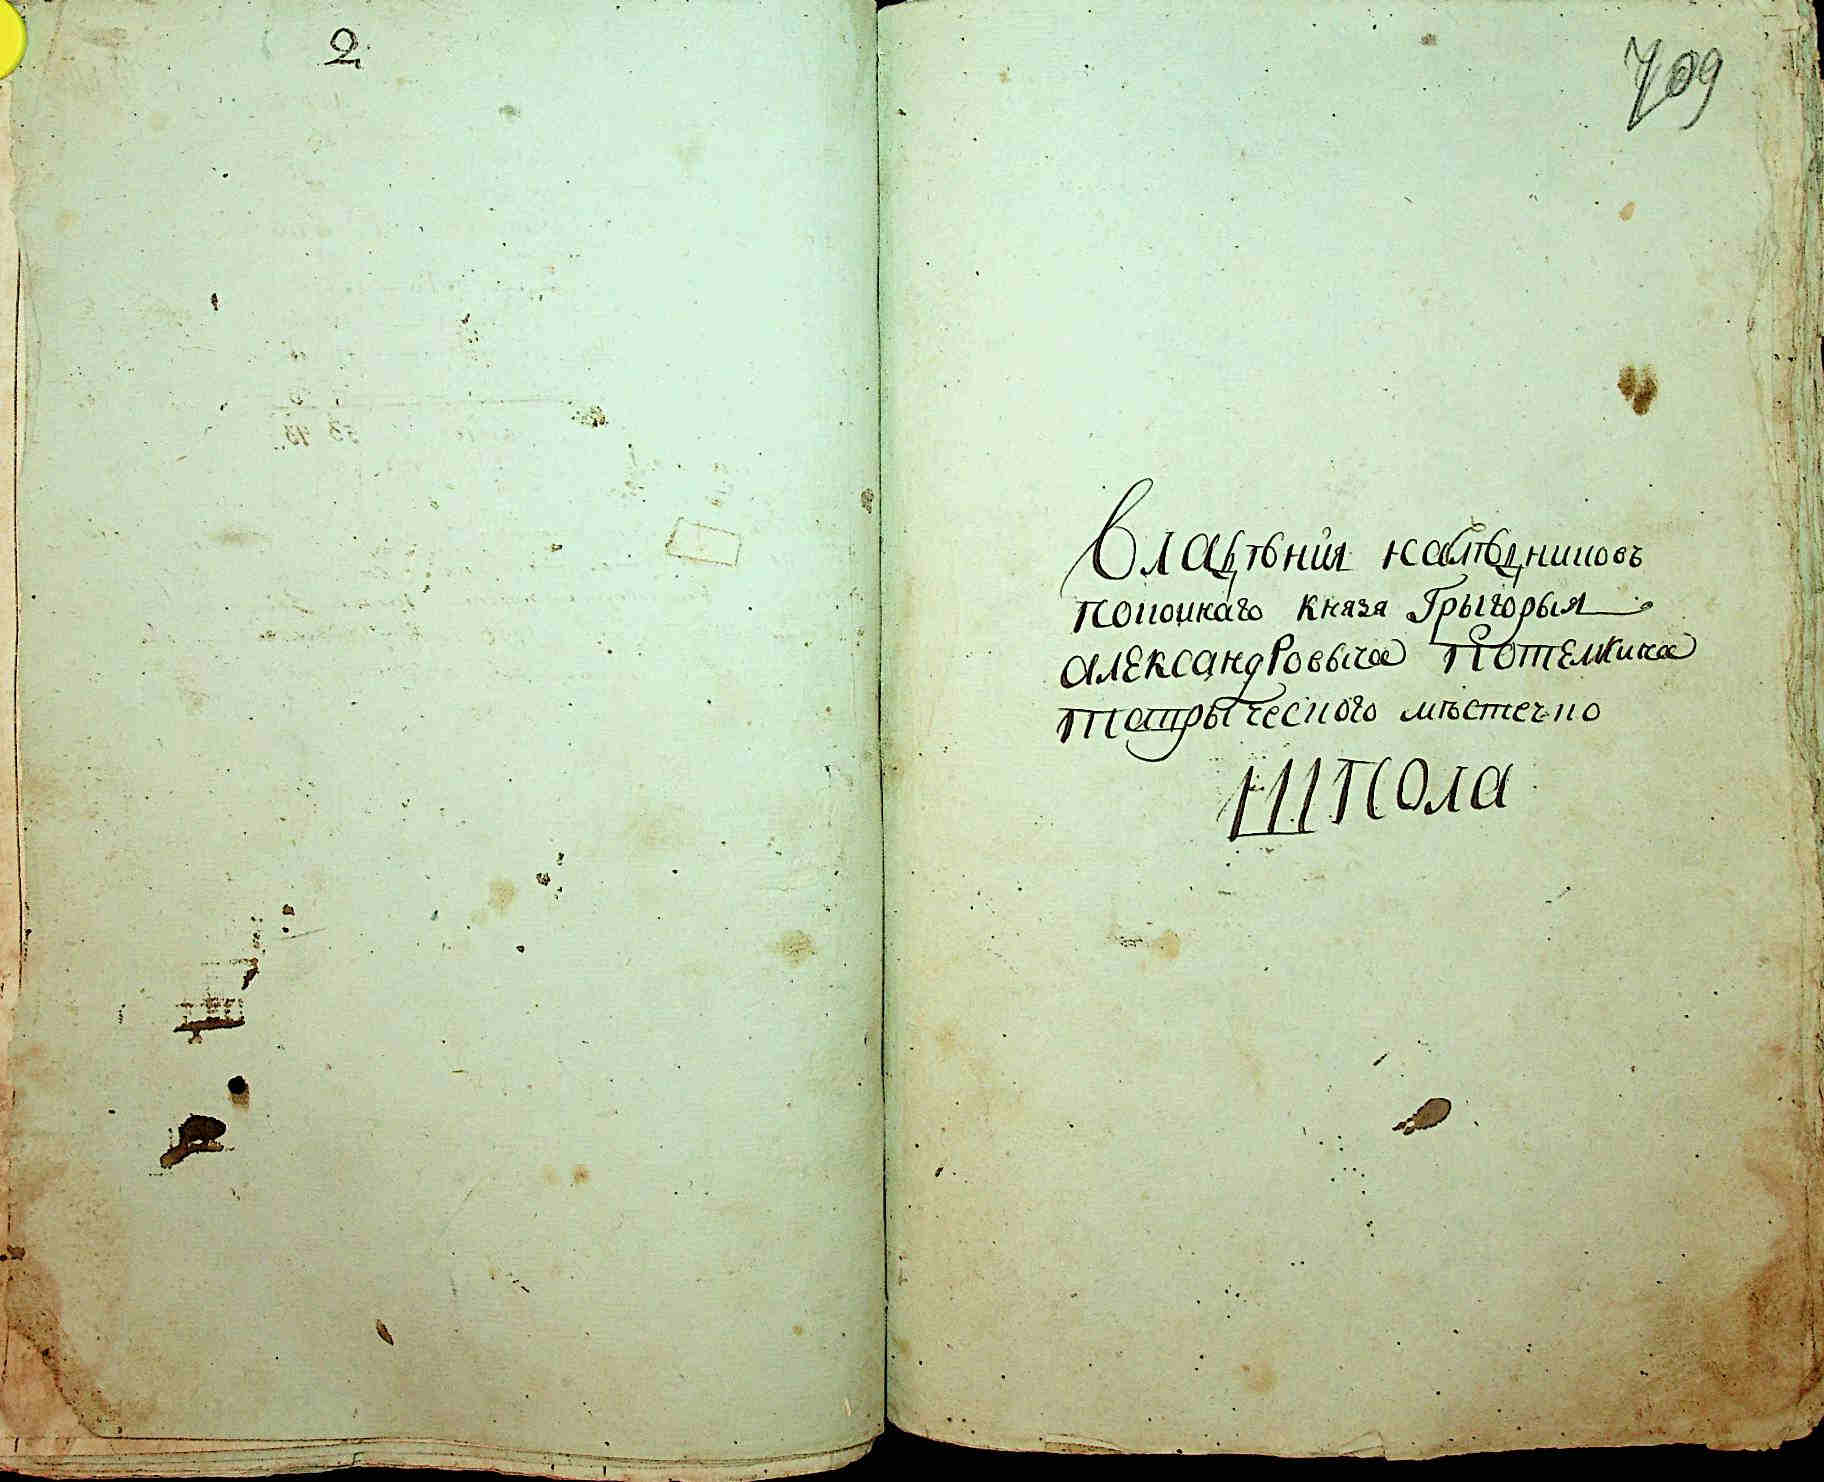 2
709
Владѣнія наслѣдниковъ
покойнаго князя Грыгорыя
Александровыча Потемкина
Таврыческого мѣстечко
Шпола